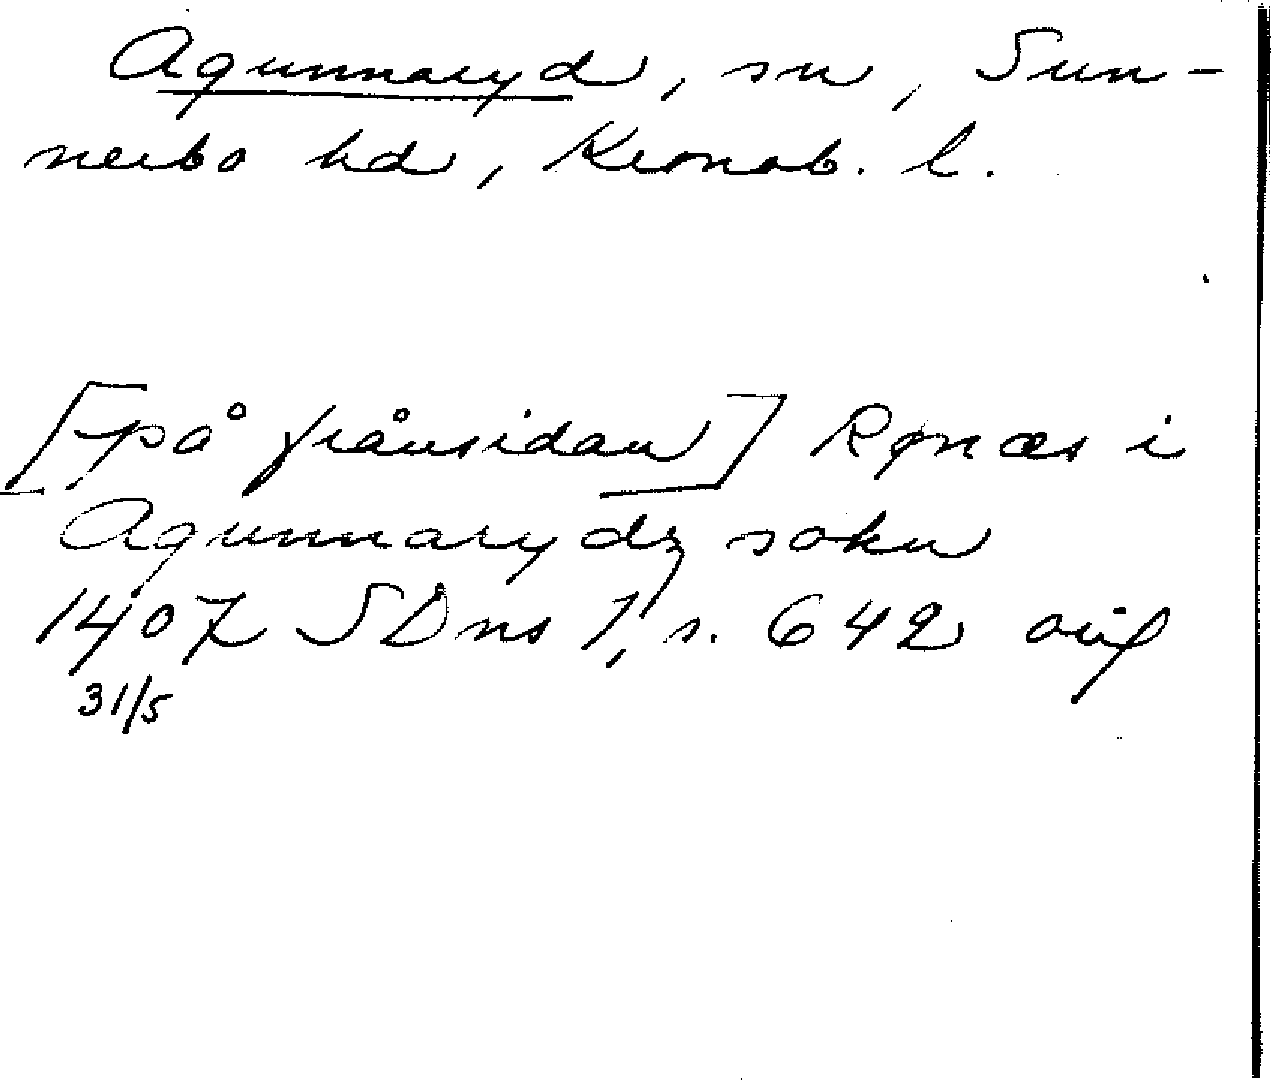 Agunnaryd, sn, Sun-
nerbo hd, Kronob. l.
[på frånsidan] Rønæs i
Agunnarydz sokn
1407 SDns 1, s. 642 or
31/5